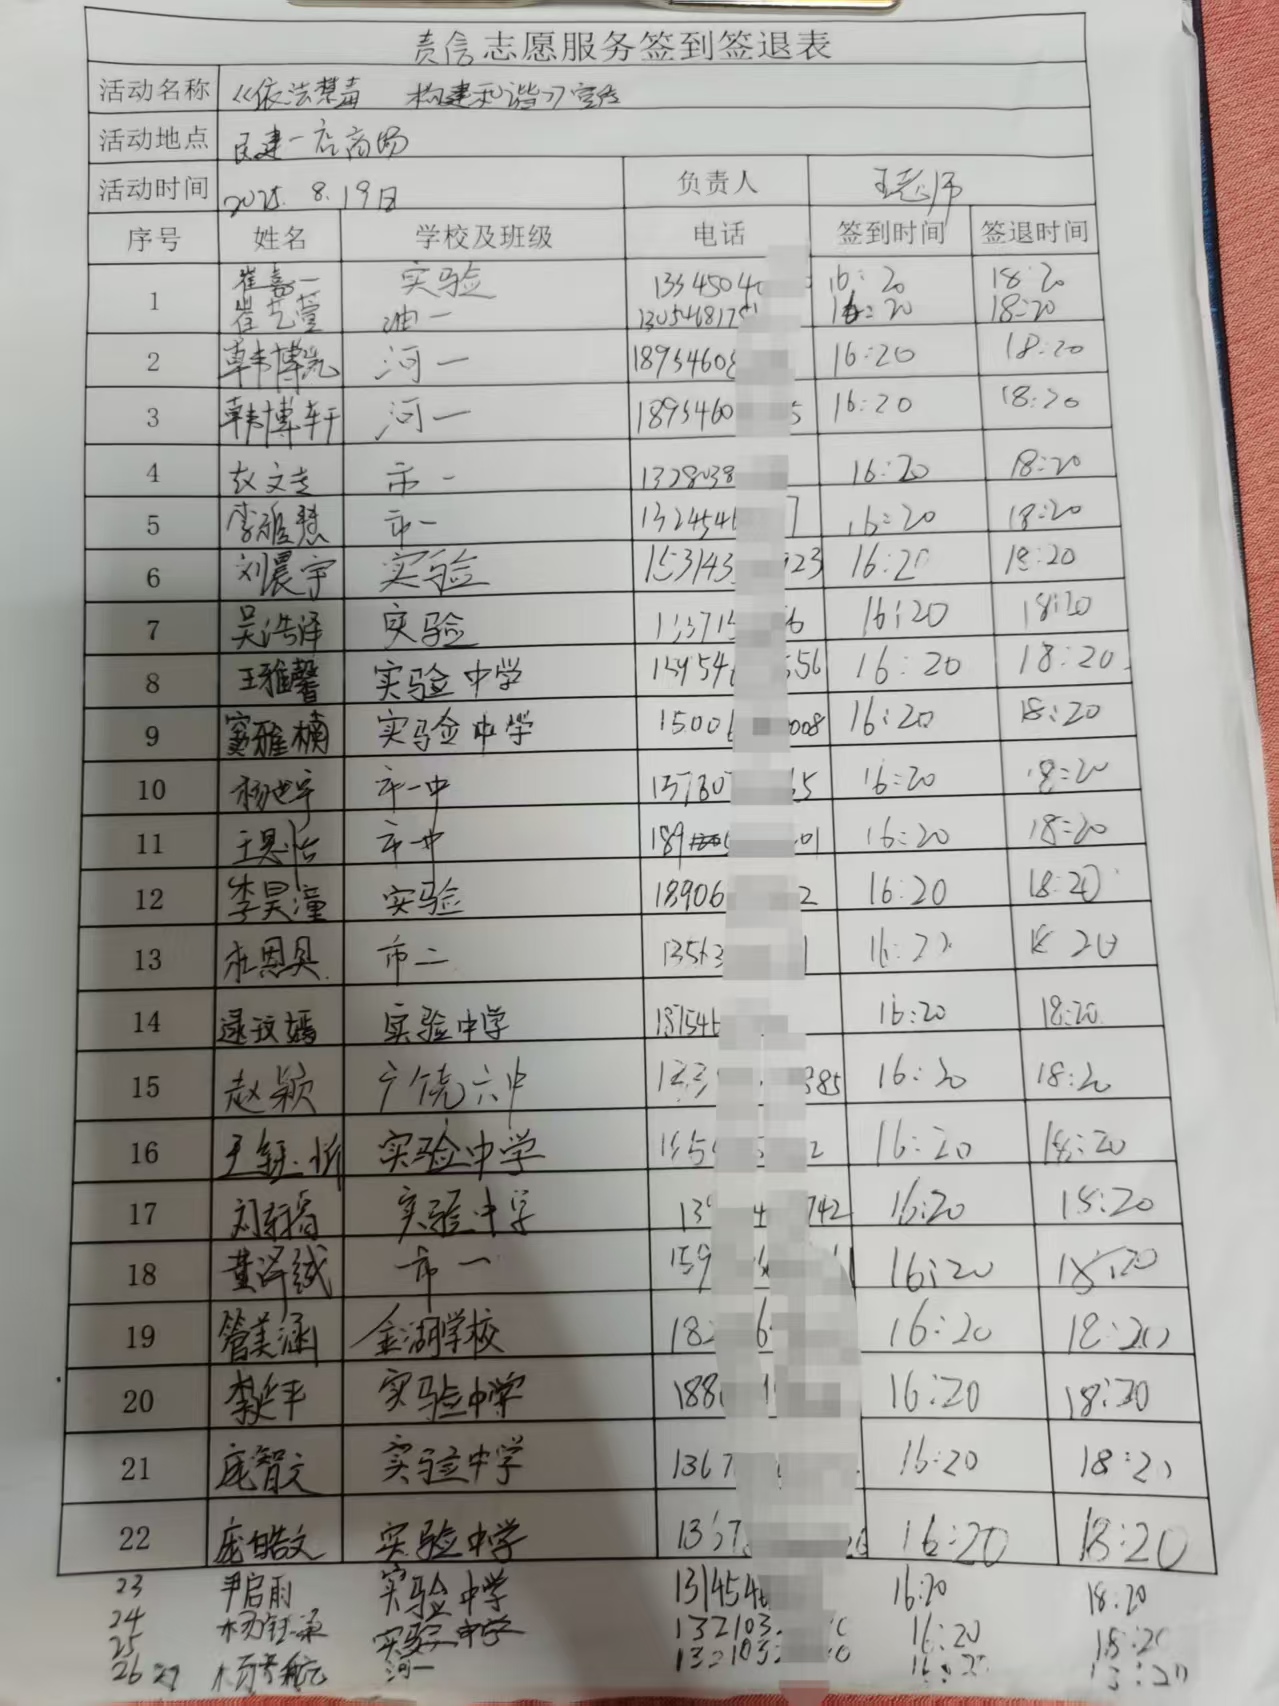 责信志愿服务签到签退表
活动名称 《依法禁毒 构建和谐》宣传
活动地点 民建一店商场
活动时间 2025.8.19日 负责人 王老师
序号 姓名 学校及班级 电话 签到时间 签退时间
1 崔嘉一 实验 1334504 16:20 18:20
崔艺萱 油一 130546817 16:20 18:20
2 韩博凯 河一 1895460 16:20 18:20
3 韩博轩 河一 1895460 5 16:20 18:20
4 赵文志 市一 1328038 16:20 18:20
5 李雅慧 市一 132454 16:20 18:20
6 刘晨宇 实验 153143 923 16:20 18:20
7 吴浩泽 实验 6 16:20 18:20
8 王雅馨 实验中学 556 16:20 18:20
9 窦雅楠 实验中学 1500 008 16:20 18:20
10 杨世宇 市一中 65 16:20 18:20
11 王思怡 市一中 189 01 16:20 18:20
12 李昊潼 实验 18906 2 16:20 18:20
13 杜恩奥 市二 13563 16:2 18 20
14 逯玟嫣 实验中学 16:20 18:20
15 赵颖 广饶六中 385 16:20 18:20
16 王钰忻 实验中学 2 16:20 18:20
17 刘 实验中学 13 4 742 16:20 18:20
18 董泽绒 市一 159 16:20 18:20
19 管美涵 金湖学校 182 6 16:20 18:20
20 李延平 实验中学 188 16:20 18:20
21 庞智文 实验中学 1367 16:20 18:20
22 庞皓文 实验中学 16:20 18:20
23 尹启雨 实验中学 131454 16:20 18:20
24 杨钰 实验中学 132103 16:20 18:20
25
26 27 杨 航 河一 132103 18:20